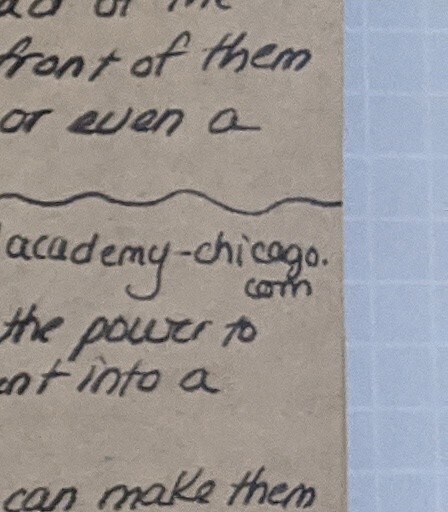 front of them
or even a
academy-chicago.
com
the power to
into a
can make them